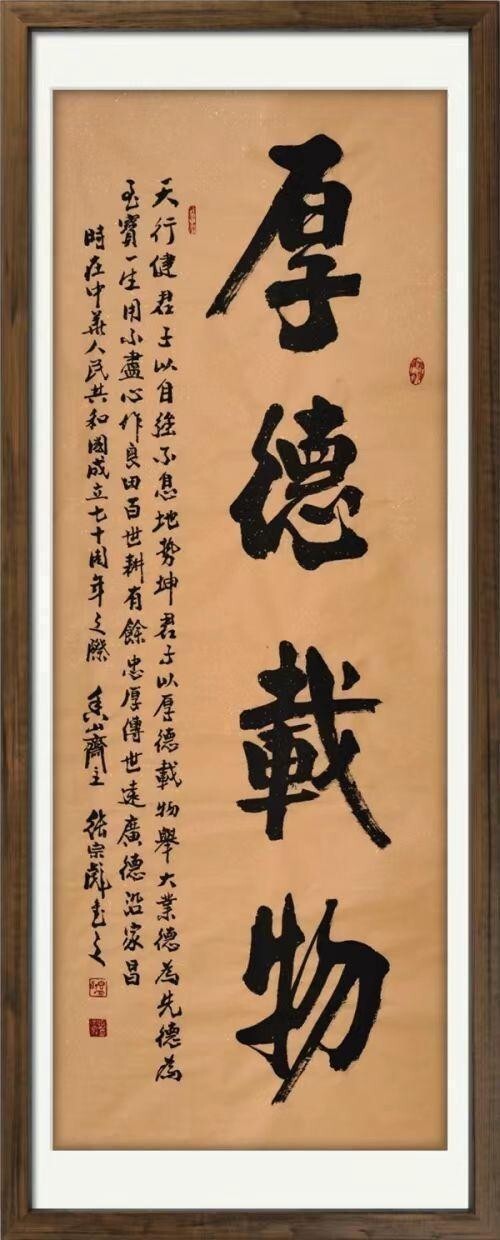 厚德載物
天行健君子以自强不息地势坤君子以厚德載物舉大業德為先德為
至寳一生用不盡心作良田百世耕有餘忠厚傳世遠廣德沿家昌
時在中華人民共和國成立七十周年之際 香山齋主 張宗彪書之